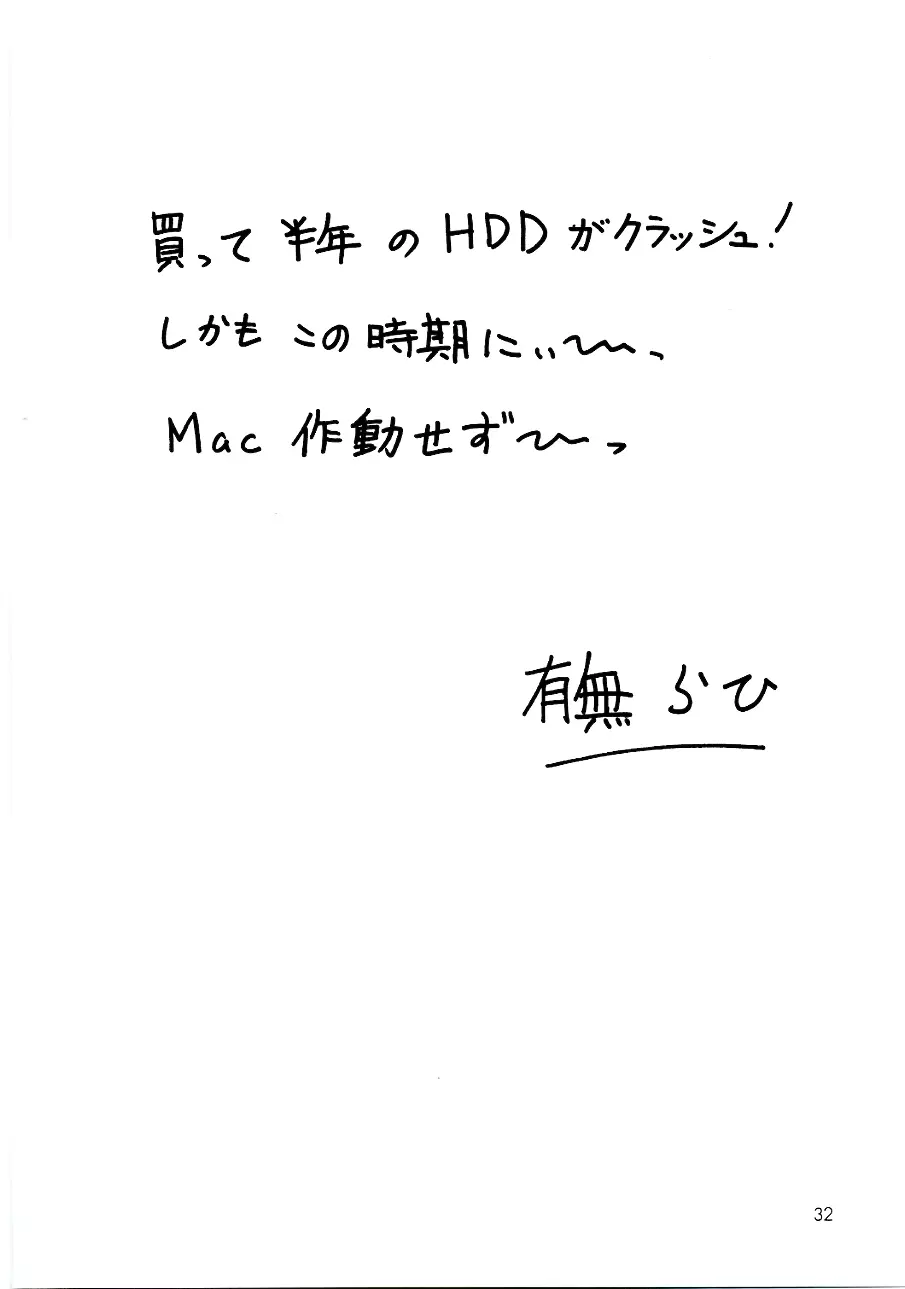 買って半年のHDDがクラッシュ!
しかもこの時期にぃぃ〜〜っ
Mac 作動せず〜〜っ
有無らひ
32